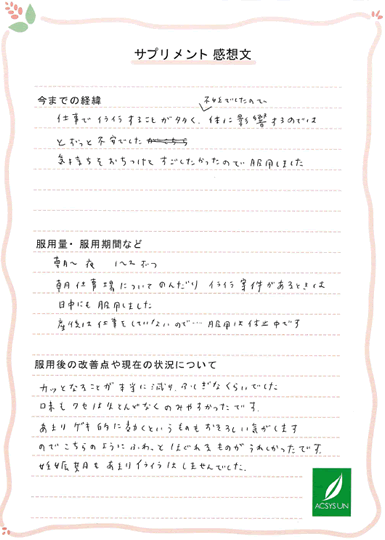 サプリメント 感想文
今までの経緯
不妊でしたので
仕事でイライラすることが多く、体に影響するのでは
とずっと不安でした
気持ちをおちつけてすごしたかったので服用しました
服用量・服用期間など
朝〜夜 1〜2つ
朝仕事場についてのんだり イライラ案件があるときは
日中にも服用しました
産後は仕事をしていないので…服用は休止中です
服用後の改善点や現在の状況について
カッとなることが本当に減り、ふしぎなくらいでした
口味もクセはほとんどなくのみやすかったです。
あまりゲキ的に効くというものもおそろしい気がします
のでこちらのようにふわっとほぐれるものがうれしかったです。
妊娠期もあまりイライラはしませんでした。
ACSYSUN